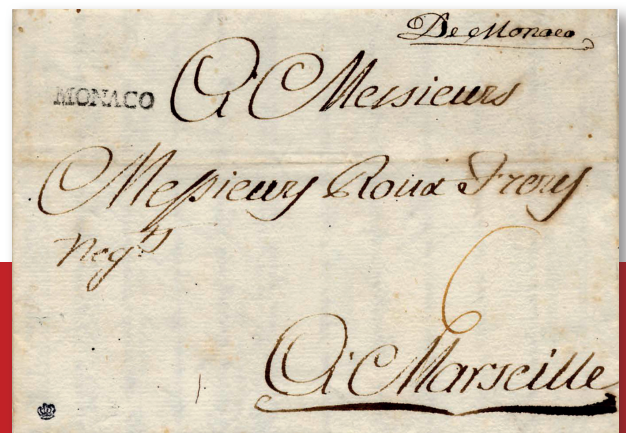 De Monaco
MONACO
A Messieurs
Messieurs Roux Freres
Negts
6
A Marseille